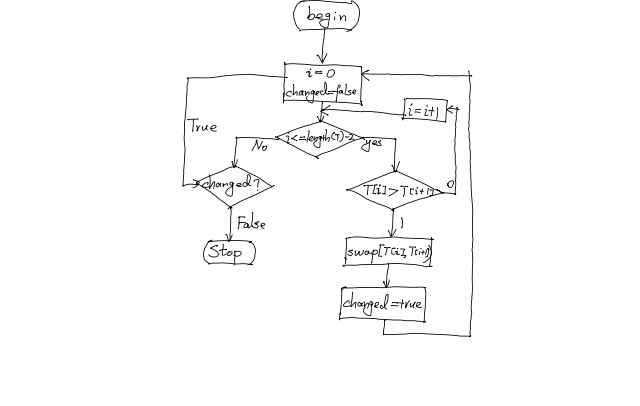 begin
i=0
changed=false
i=i+1
i<=length(T)-2
No
yes
True
changed?
T[i]>T[i+1]
0
False
1
Stop
swap[T[i],T[i+1])
changed=true